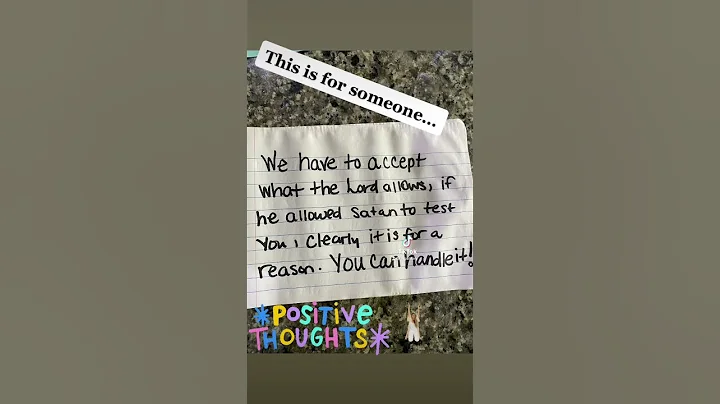 This is for someone...
We have to accept
what the Lord allows, if
he allowed Satan to test
you, clearly it is for a
reason. You can handle it!
*POSITIVE
THOUGHTS*